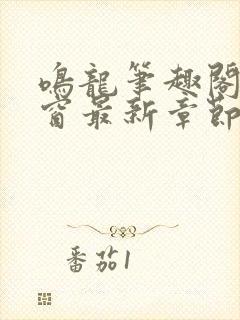 鳴龍筆趣閣
窗最新章節
番茄1